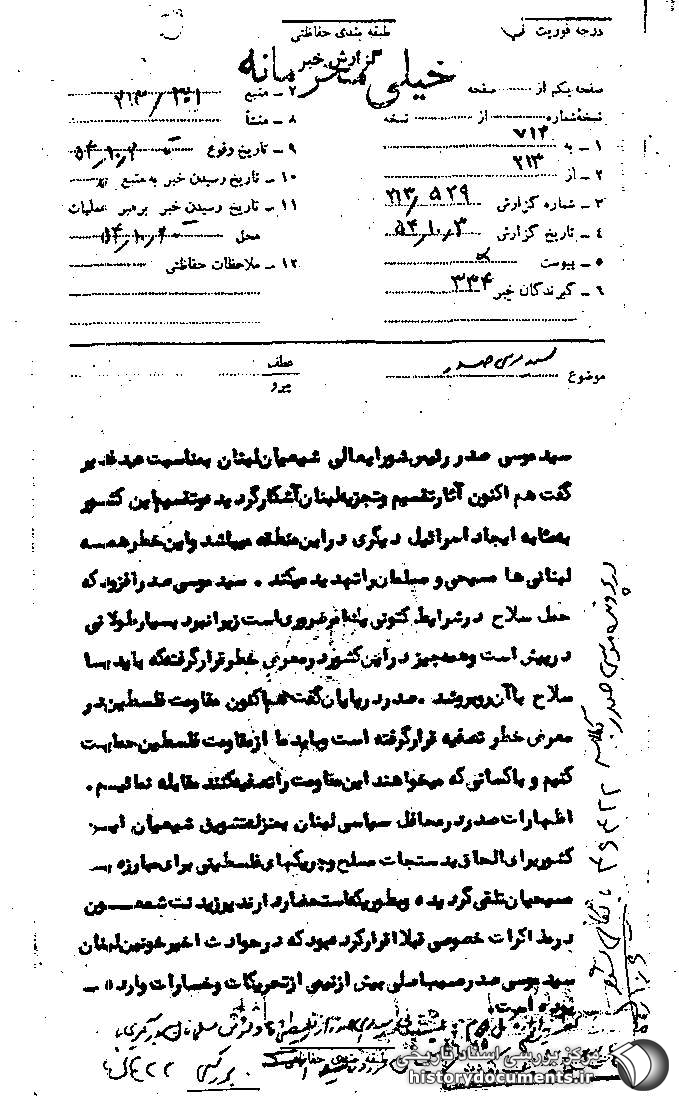 درجه فوریت
طبقه بندی حفاظتی
گزارش خبر
خیلی محرمانه
صفحه یکم از ........ صفحه
نسخه شماره ........ از ........ نسخه
۱ ـ به ۷۱۲
۲ ـ از ۲۱۳
۳ ـ شماره گزارش ۲۱۳/۵۲۹
۴ ـ تاریخ گزارش ۵۴/۱۰/۳
۵ ـ پیوست
۶ ـ گیرندگان خبر ۳۳۴
۷ ـ منبع
۸ ـ منشأ
۹ ـ تاریخ وقوع
۱۰ ـ تاریخ رسیدن خبر به منبع
۱۱ ـ تاریخ رسیدن خبر برهبر عملیات
محل
۱۲ ـ ملاحظات حفاظتی
موضوع سید موسی صدر
عطف
پیرو
سید موسی صدر رئیس شورایعالی شیعیان لبنان بمناسبت عید غدیر
گفت هم اکنون آثار تقسیم و تجزیه لبنان آشکار گردیده و تقسیم این کشور
بمثابه ایجاد اسرائیل دیگری در این منطقه میباشد و این خطر همه
لبنانی ها مسیحی و مسلمان را تهدید میکند . سید موسی صدر افزود که
حمل سلاح در شرایط کنونی یک امر ضروری است زیرا نبرد بسیار طولانی
در پیش است و همه چیز در این کشور در معرض خطر قرار گرفته که باید با
سلاح با آن روبرو شد . صدر در پایان گفت هم اکنون مقاومت فلسطین در
معرض خطر تصفیه قرار گرفته است و باید ما از مقاومت فلسطین حمایت
کنیم و با کسانی که میخواهند این مقاومت را تصفیه کنند مقابله نمائیم .
اظهارات صدر در محافل سیاسی لبنان بمنزله تشویق شیعیان این
کشور برای الحاق بدستجات مسلح و چریکهای فلسطینی برای مبارزه با
مسیحیان تلقی گردیده و بطوریکه استحضار دارند پرزیدنت شمعون
در مذاکرات خصوصی قبلا اقرار کرده بود که در حوادث اخیر خونین لبنان
سید موسی صدر مسبب اصلی بیش از نیمی از تحریکات و خسارات وارده
بوده است .
طبقه بندی حفاظتی
در پرونده موسی صدر
مرکز بررسی اسناد تاریخی
historydocuments.ir